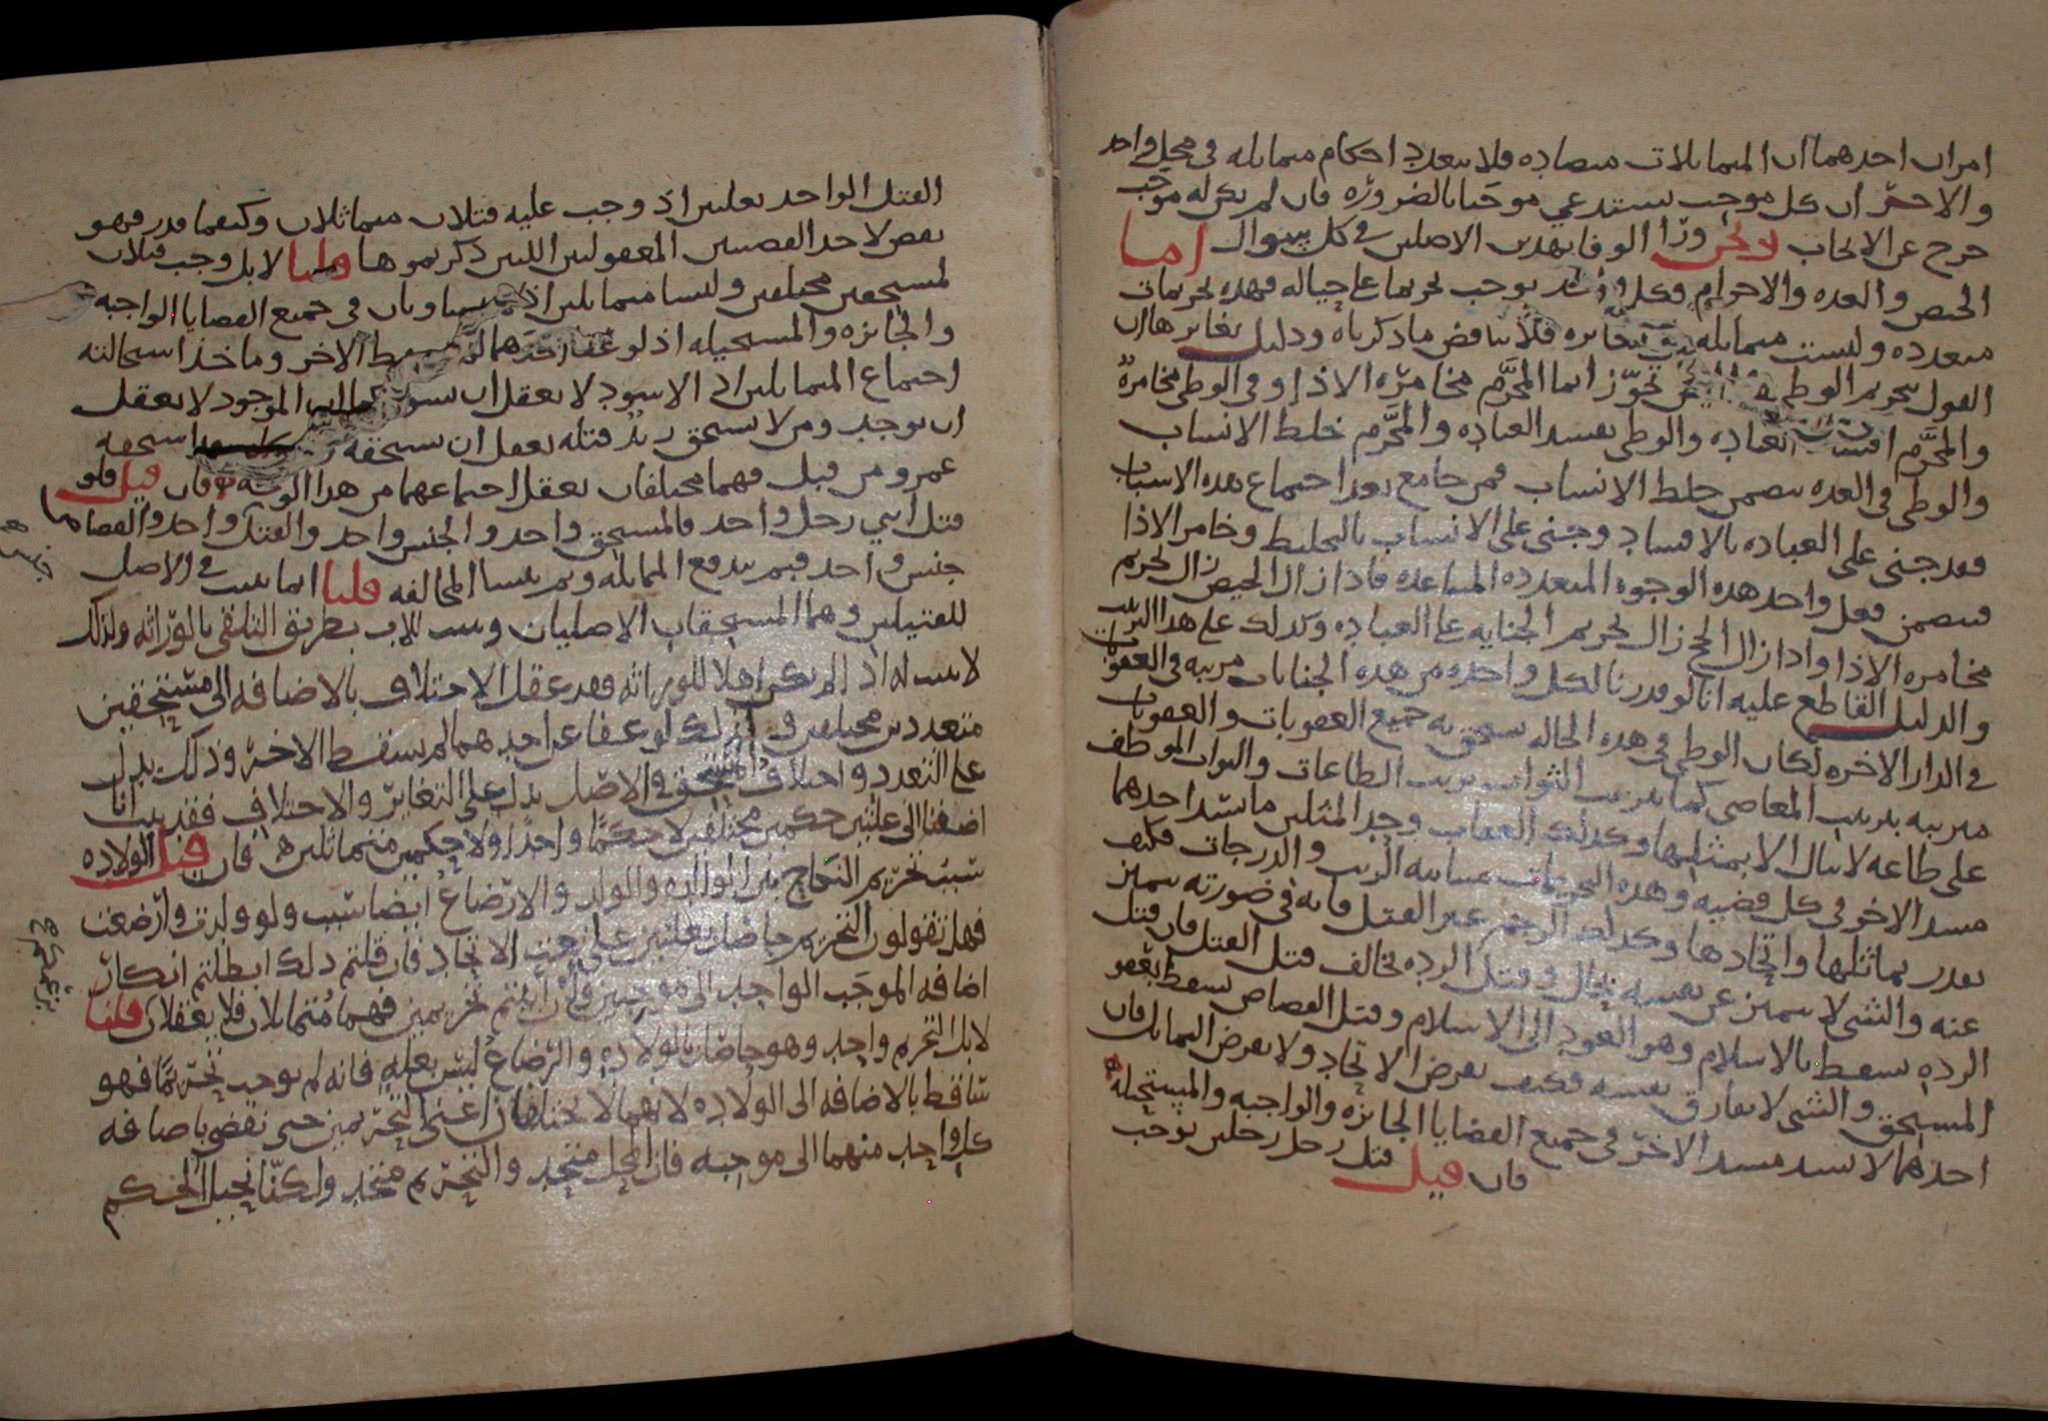 امران احدهما ان المتماثلات متضاده فلا تتعدد احكام متماثله في محل واحد
والاخر ان كل موجب يستدعي موجبا بالضروره فان لم يكن له موجب
خرج عن الايجاب ونحن ورا الوفا بهدين الاصلين في كل سوال اما
الحيض والعده والاحرام فكل واحد يوجب تحريما على حياله فهده تحريمات
متعدده وليست متماثله متغايره فلا يناقض ما دكرناه ودليل تغايرها ان
القول بتحريم الوطي تجوز انما المحرم مخامره الاذا وفي الوطي مخامره
والمحرم افساد العباده والوطي يفسد العباده والمحرم خلط الانساب
والوطي في العده يتضمن خلط الانساب فمن جامع بعد اجتماع هده الاسباب
فقد جنى على العباده بالافساد وجنى على الانساب بالتخليط وخامر الاذا
فتضمن فعل واحد هده الوجوه المتعدده المتباعده فاذا زال الحيض زال تحريم
مخامره الاذا واذا زال الحج زال تحريم الجنايه على العباده وكدلك على هدا الترتيب
والدليل القاطع عليه انا لو قدرنا لكل واحده من هده الجنايات مرتبه في العقوبات
في الدار الاخره لكان الوطي في هده الحاله يستحق به جميع العقوبات والعقوبات
مرتبه بترتيب المعاصي كما يترتب الثواب بترتيب الطاعات والثواب الموظف
على طاعه لا ينال الا بمثلها وكدلك العقاب وحد المثلين ما يسد احدهما
مسد الاخر في كل قضيه وهده التحريمات متباينه الرتب والدرجات فكيف
يقدر تماثلها واتحادها وكدلك الرجم غير القتل فانه في صورته يتميز
عنه والشي لا يتميز عن نفسه بحال وقتل الرده يخالف قتل القتل فان قتل
الرده يسقط بالاسلام وهو العود الى الاسلام وقتل القصاص يسقط بعفو
المستحق والشي لا يفارق نفسه فكيف يفرض الاتحاد ولا يفرض التماثل فان
احدهما لا يسد مسد الاخر في جميع القضايا الجائزه والواجبه والمستحيله
فان قيل قتل رجل رجلين يوجب
القتل الواحد بعلتين اذ وجب عليه قتلان متماثلان وكيفما قدر فهو
نقض لاحد القضيتين المعقولتين اللتين ذكرتموها قلنا لا بل وجب قتلان
لمستحقين مختلفين وليسا متماثلين اذ لا يتساويان في جميع القضايا الواجبه
والجائزه والمستحيله اذ لو عفا احدهما لم يسقط الاخر وماخذ استحاله
اجتماع المتماثلين ان الاسود لا يعقل ان يسود كما ان الموجود لا يعقل
ان يوجد ومن لا يستحق زيد قتله يعقل ان يستحقه استحقه
عمرو من قبل فهما مختلفان يعقل اجتماعهما من هدا الوجه فان قيل فلو
قتل ابني رجل واحد فالمستحق واحد والجنس واحد والقتل واحد والقصاص
جنس واحد فبم تندفع المماثله وبم تنشا المخالفه قلنا انما يثبت في الاصل
للقتيلين وهما المستحقان الاصليان ويثبت للاب بطريق التلقي بالوراثه ولذلك
لا يثبت له اذا لم يكن اهلا للوراثه فقد عقل الاختلاف بالاضافه الى مستحقين
متعددين مختلفين في الاصل لذلك لو عفا عن احدهما لم يسقط الاخر وذلك يدل
على التعدد واختلاف المستحق في الاصل يدل على التغاير والاختلاف فقد بان انا
اضفنا الى علتين حكمين مختلفين لا حكما واحدا ولا حكمين متماثلين فان قيل الولاده
سبب تحريم النكاح بين الوالده والولد والارضاع ايضا سبب ولو ولدت وارضعت
فهل تقولون التحريم حاصل بعلتين على نعت الاتحاد فان قلتم دلك ابطلتم انكار
اضافه الموجب الواحد الى موجبين وان اثبتم تحريمين فهما متماثلان فلا يعقلان قلنا
لا بل التحريم واحد وهو حاصل بالولاده والرضاع ليس بعله فانه لم يوجب تحريما فهو
ساقط بالاضافه الى الولاده لانهما لا يختلفان اعني التحريمين حتى نقضي باضافه
كل واحد منهما الى موجبه فان المحل متحد والتحريم متحد ولكنا نحيل الحكم